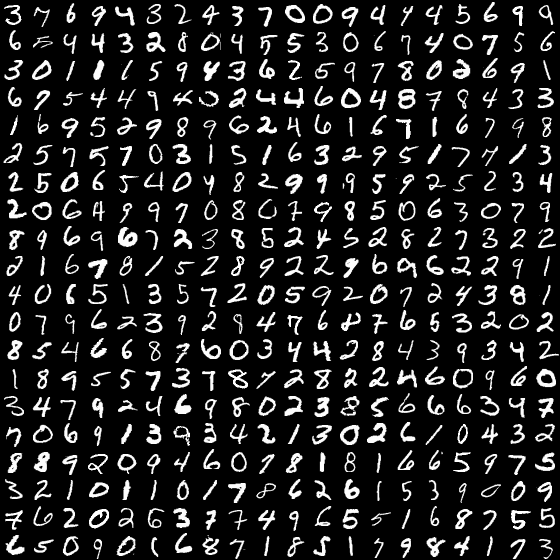 3 7 6 9 4 3 2 4 3 7 0 0 9 4 4 4 5 6 9 9
6 5 4 4 3 2 8 0 4 5 5 3 0 6 7 4 0 7 5 6
3 0 1 1 1 5 9 4 3 6 2 5 9 7 8 0 2 6 9 1
6 7 5 4 4 9 4 0 2 4 4 6 0 4 8 7 8 4 3 3
1 6 9 5 2 9 8 9 6 2 4 6 1 6 7 1 6 7 9 8
2 5 7 5 7 0 3 1 5 1 6 3 2 9 5 1 7 7 1 3
2 5 0 6 5 4 0 4 8 2 9 9 9 5 9 2 5 2 3 4
2 0 6 4 9 9 7 0 8 0 7 9 8 5 0 6 3 0 7 9
8 9 6 9 6 7 2 3 8 5 2 4 5 2 8 2 7 3 2 2
2 1 6 7 8 1 5 2 8 9 2 2 9 6 9 6 2 2 9 1
4 0 6 5 1 3 5 7 2 0 5 9 2 0 7 2 4 3 8 1
0 7 9 6 2 3 9 2 9 4 7 6 8 7 6 5 3 2 0 2
8 5 4 6 6 8 7 6 0 3 4 4 2 8 4 3 9 3 4 2
1 8 9 5 5 7 3 7 8 7 2 8 2 2 4 6 0 9 6 0
3 4 7 9 2 4 6 9 8 0 2 3 8 5 6 6 6 3 4 7
7 0 6 9 1 3 9 3 4 2 1 3 0 2 6 1 0 4 3 2
8 8 9 2 0 9 4 6 0 7 8 1 8 1 6 6 5 9 7 5
3 2 1 0 1 1 0 1 7 8 6 2 6 1 5 3 9 0 0 9
7 6 2 0 2 6 3 7 7 4 9 6 5 5 1 6 8 7 5 5
6 5 0 9 0 6 8 7 1 8 5 1 7 9 8 4 1 7 3